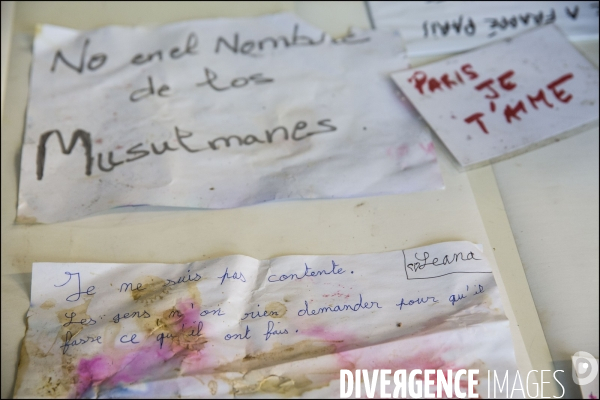 No en el Nombre
de los
Musulmanes
A FAVORE PARIS
PARIS JE
T'AIME
Je ne suis pas contente.
Leana
Les gens m'on rien demander pour qu'il
fasse ce qu'il ont fais.
DIVERGENCE IMAGES